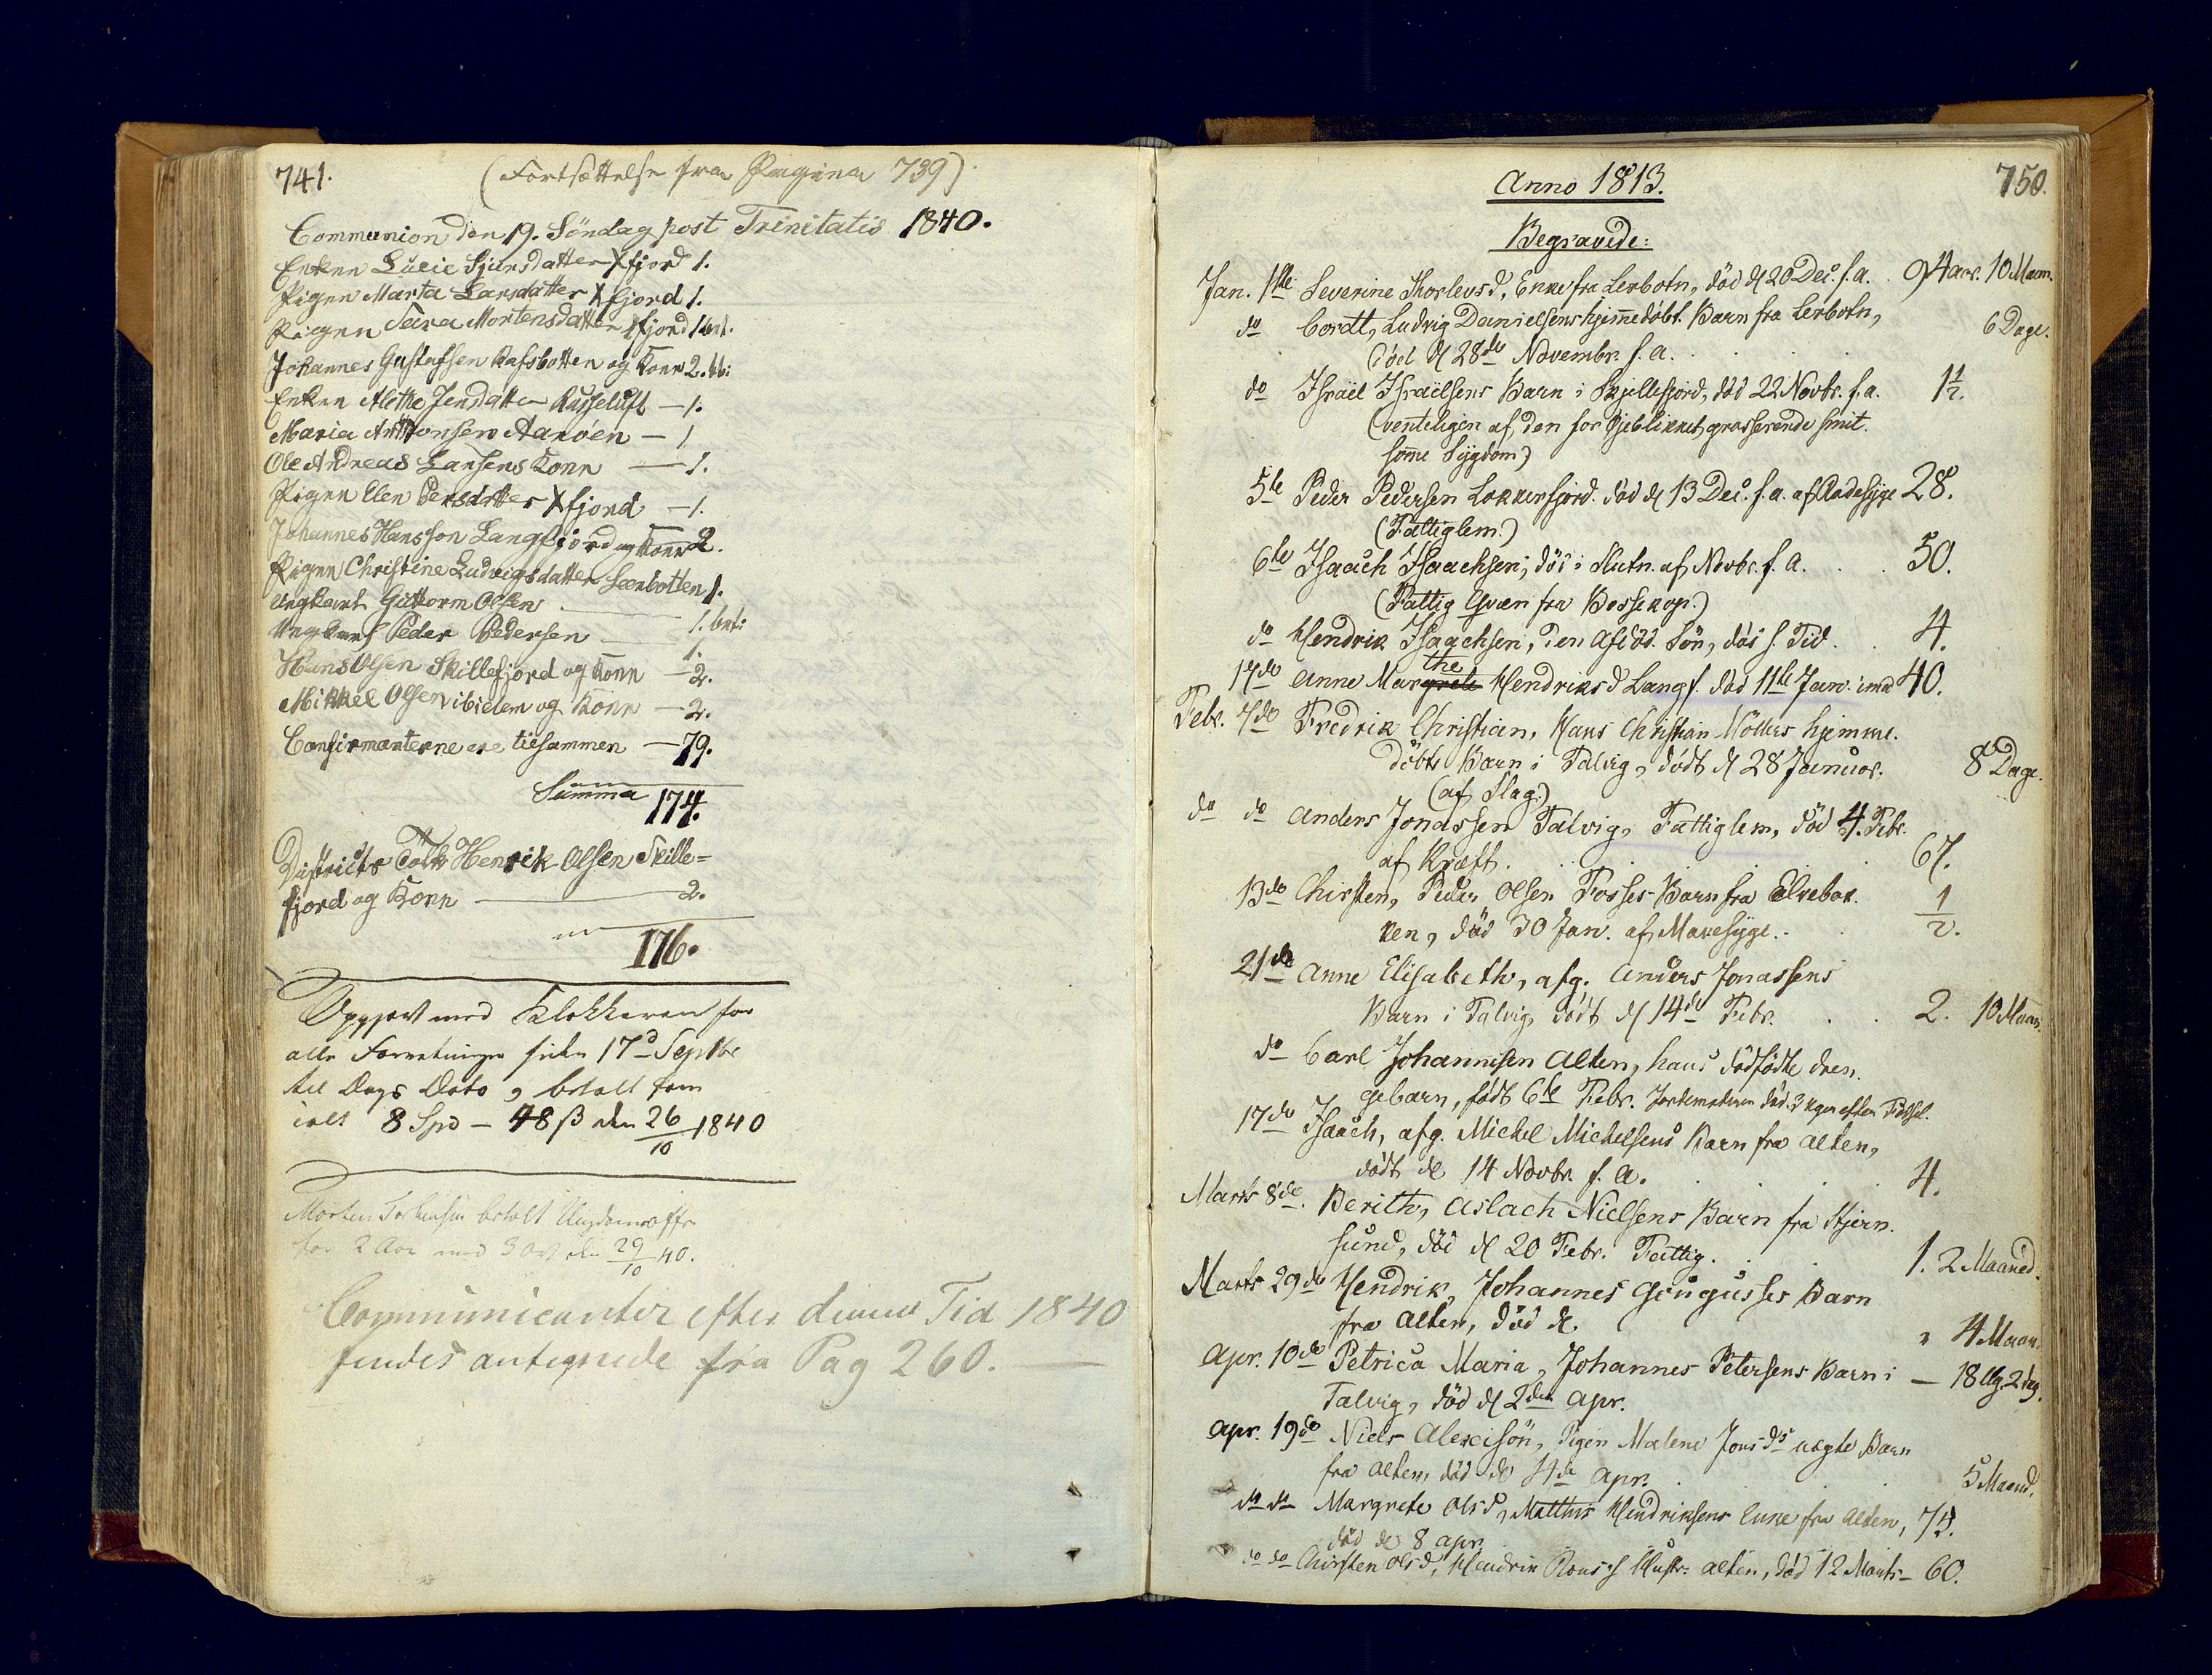 741.
(Fortsættelse fra Pagina 739)
Communion den 19. Söndag post Trinitatis 1840.
Enken Lucie Sjursdatter Xfjord 1.
Pigen Marta Larsdatter Xfjord 1.
Pigen Sara Mortensdatter Xfjord 1 bet.
Johannes Gustafsen Rafsbotten og Kone 2.
Enken Alethe Jensdatter Russeluft — 1.
Maria Anthonsen Aaröen — 1
Ole Andreas Larsens Kone — 1.
Pigen Elen Persdatter Xfjord — 1.
Johannes Hansson Langfjord og Kone 2.
Pigen Christine Ludvigsdatter Leerbotten 1.
Ungkarl Guttorm Olsen
Ungkarl Peder Pedersen — 1. bet:
1.
Hans Olsen Skillefjord og Kone — 2.
Mikkel Olsen ibidem og Kone — 2.
Confirmanterne ere tilsammen — 79.
Summa 174.
Districts Tolk Henrik Olsen Skille=
fjord og Kone — 2.
176.
Opgjort med Klokkeren for
alle Forretninger siden 17d Septbr
til Dags Dato, betalt ham
ialt 8 Spd — 48 ß den 26/10 1840
Morten betalt
for 2 Aar med 3 Ort den 29/10 40.
Communicanter efter denne Tid 1840
findes antegnede fra Pag 260. —
Anno 1813.
750.
Begravede:
Jan. 1ste Severine Thorlevsd, Enke fra Lerbotn, död d 20 Dec. f. a. 94 aar. 10 Maan.
do Cordt, Ludvig Danielsens hjemmedöbt Barn fra Lerbotn,
död d 28de Novembr. f. a. 6 Dage.
do Israël Israëlsens Barn i Skjillefjord, död 22 Novbr. f. a. 1½.
(venteligen af den for Öjeblikket grasserende smit
somme Sygdom)
5te Peder Pedersen Lokkerfjord. död d 13 Dec. f. a. af Radesyge 28.
(Fattiglem.)
6te Isaach Isaachsen, död i Slutn. af Novbr. f. a. 50.
(Fattig Qvæn fra Bossekop.)
do Hendrik Isaachsen, den Afdöd. Sön, död s. Tid. 4.
the
17de Anne Margrete Hendriksd Langf. död 11te Jan. 40.
Febr. 7de Fredrik Christian, Hans Christian Möllers hjemme
döbte Barn i Talvig, dödt d 28 Januar. 8 Dage.
(af Slag.)
do do Anders Jonassen Talvig, Fattiglem, död 4. Febr.
af Kræft. 67.
13de Chirsten, Peder Olsen Fosses Barn fra Elvebak
ken, död 30 Jan. af Mavesyge. 1/2.
21de Anne Elisabeth, afg. Anders Jonassens
Barn i Talvig, dödt d 14de Febr. 2. 10 Maan.
do Carl Johannisen Alten, hans dödfödte dren
gebarn, födt 6te Febr.
17de Isaach, afg. Michel Michelsens Barn fra Alten,
dödt d 14 Novbr. f. a. 4.
Marts 8de. Berith, Aslach Nielsens Barn fra Stjern
sund, död d 20 Febr. Fattig. 1. 2 Maaned.
Marts 29de Hendrik, Johannes Barn
fra Alten, död d. " 4 Maan.
Apr. 10de Petrica Maria, Johannes Petersens Barn i — 18 Ug. 2 dag.
Talvig, död d 2den Apr.
Apr. 19de Niels Alexisön, Pigen Malene Jonsds uægte Barn
fra Alten, död d 4de Apr. 5 Maaned.
do do Margrete Olsd, Matthis Hendriksens Enke fra Alten, 74.
död d 8 Apr.
do do Chirsten Olsd, Hendrik Hustr. Alten, död 12 Marts — 60.